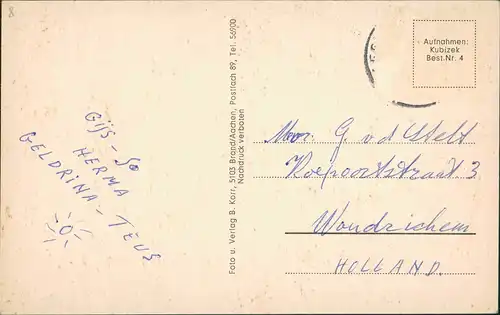 8
Gijs - Jo
HERMA
GELDRINA - TEUS
Foto u. Verlag B. Korr, 5103 Brand/Aachen, Postfach 89, Tel. 56900
Nachdruck verboten
Aufnahmen:
Kubizek
Best.Nr. 4
G. v d Stelt
Koepoortstraat 3
Woudrichem
HOLLAND.